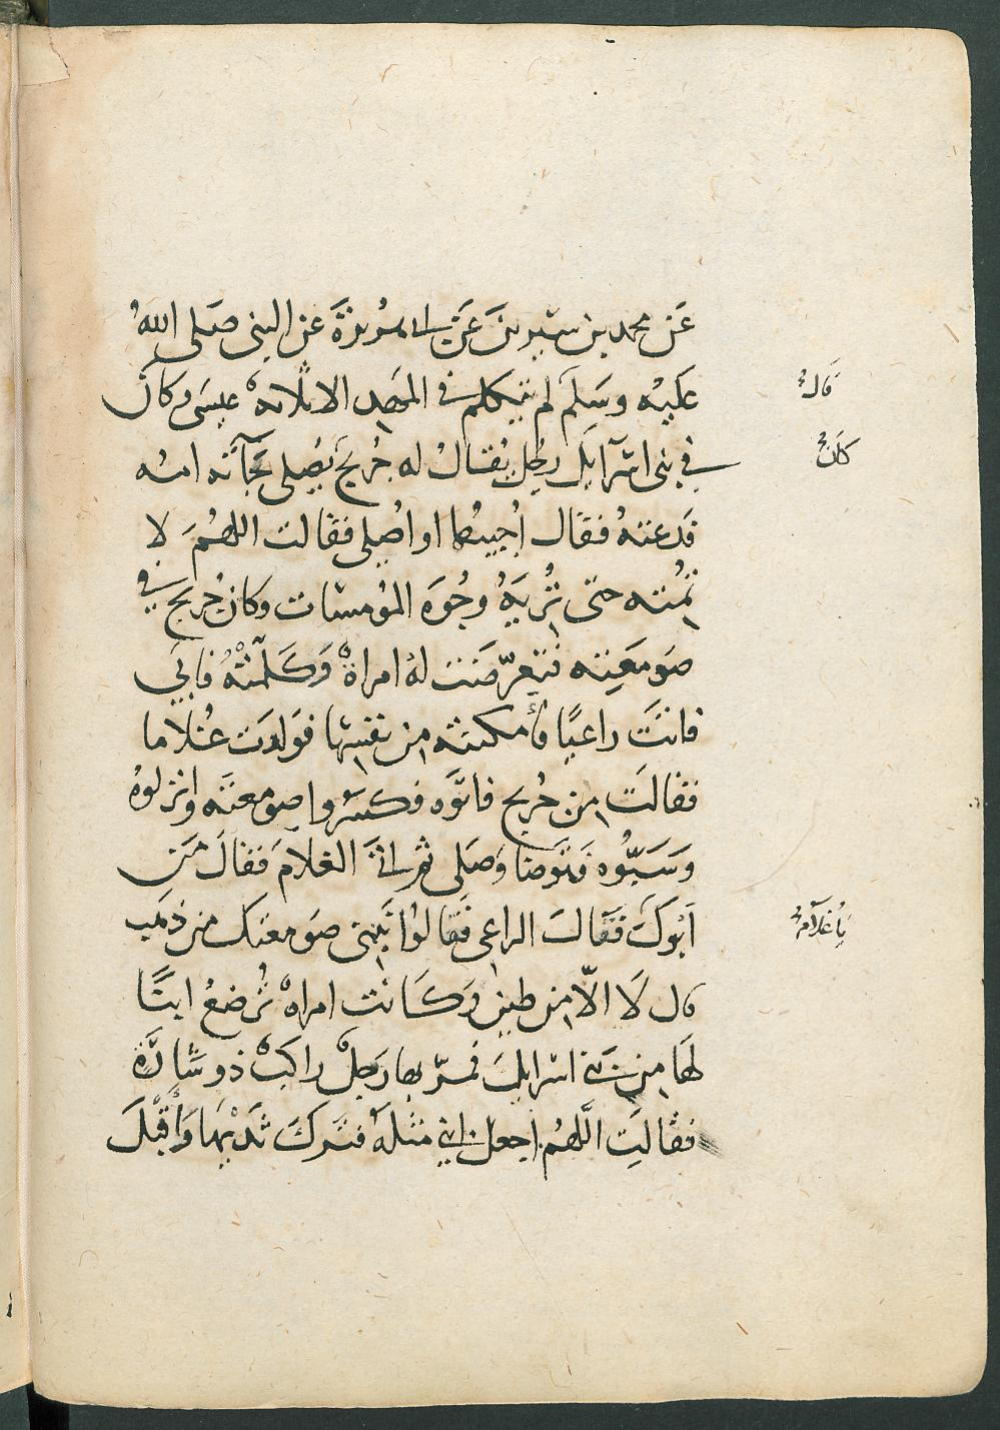 عَن محمد بن سيرينَ عَن ابي هُريرَةَ عن النبي صَلى اللهُ
عَليْه وسَلمَ لم يتكلم في المَهد الا ثلاثةٌ عيسَى وكانَ
في بنى اسْرآيلَ رجُل يُقالُ له جُرَيج يُصلى فجآءَته امُّه
فدعتهُ فقال اُجيبُها او اُصلى فقالت اللهُمَ لا
تُمِته حتى تُرِيَهُ وجُوَه المُومسات وكان جُريج في
صَومَعَتِه فتعرّضَت لهُ امراةٌ وَكَلَّمتْهُ فابَي
فاتَت راعيًا فأمكنتْه مِن نفسِها فوَلدَت غُلاما
فقالَت مِن جُريج فاتَوه فكسَروا صومعتَه وانزلوهُ
وَسَبُّوه فتَوضا وَصَلى ثم اتَى الغلامَ فقالَ مَن
اَبُوكَ فقَالَ الراعى فقالوُا نَبنى صَومعتَك من ذهَب
قال لَا الّا مِن طين وَكَانت امراهٌ تُرضعُ ابنًا
لهَا مِن بَني اسْرايلَ فمرّ بها رَجلٌ راكبٌ ذو شَارَةٍ
فقالَتِ اللَّهُم اجعل ابني مثلَهُ فتَركَ ثَدْيَهَا وَأَقْبَلَ
قالَ
كانَ
يا غلامُ